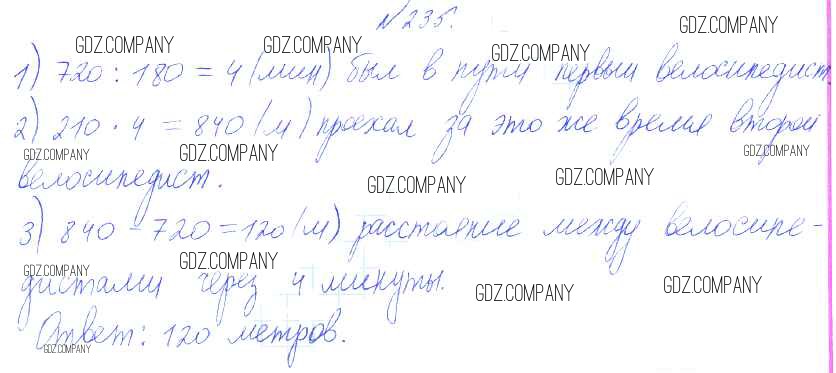 №235.
GDZ.COMPANY
GDZ.COMPANY GDZ.COMPANY GDZ.COMPANY
1) 720 : 180 = 4 (мин) был в пути первый велосипедист.
2) 210 · 4 = 840 (м) проехал за это же время второй
GDZ.COMPANY GDZ.COMPANY GDZ.COMPANY
велосипедист.
GDZ.COMPANY GDZ.COMPANY
3) 840 - 720 = 120 (м) расстояние между велосипе-
GDZ.COMPANY GDZ.COMPANY
дистами через 4 минуты.
GDZ.COMPANY GDZ.COMPANY
Ответ: 120 метров.
GDZ.COMPANY